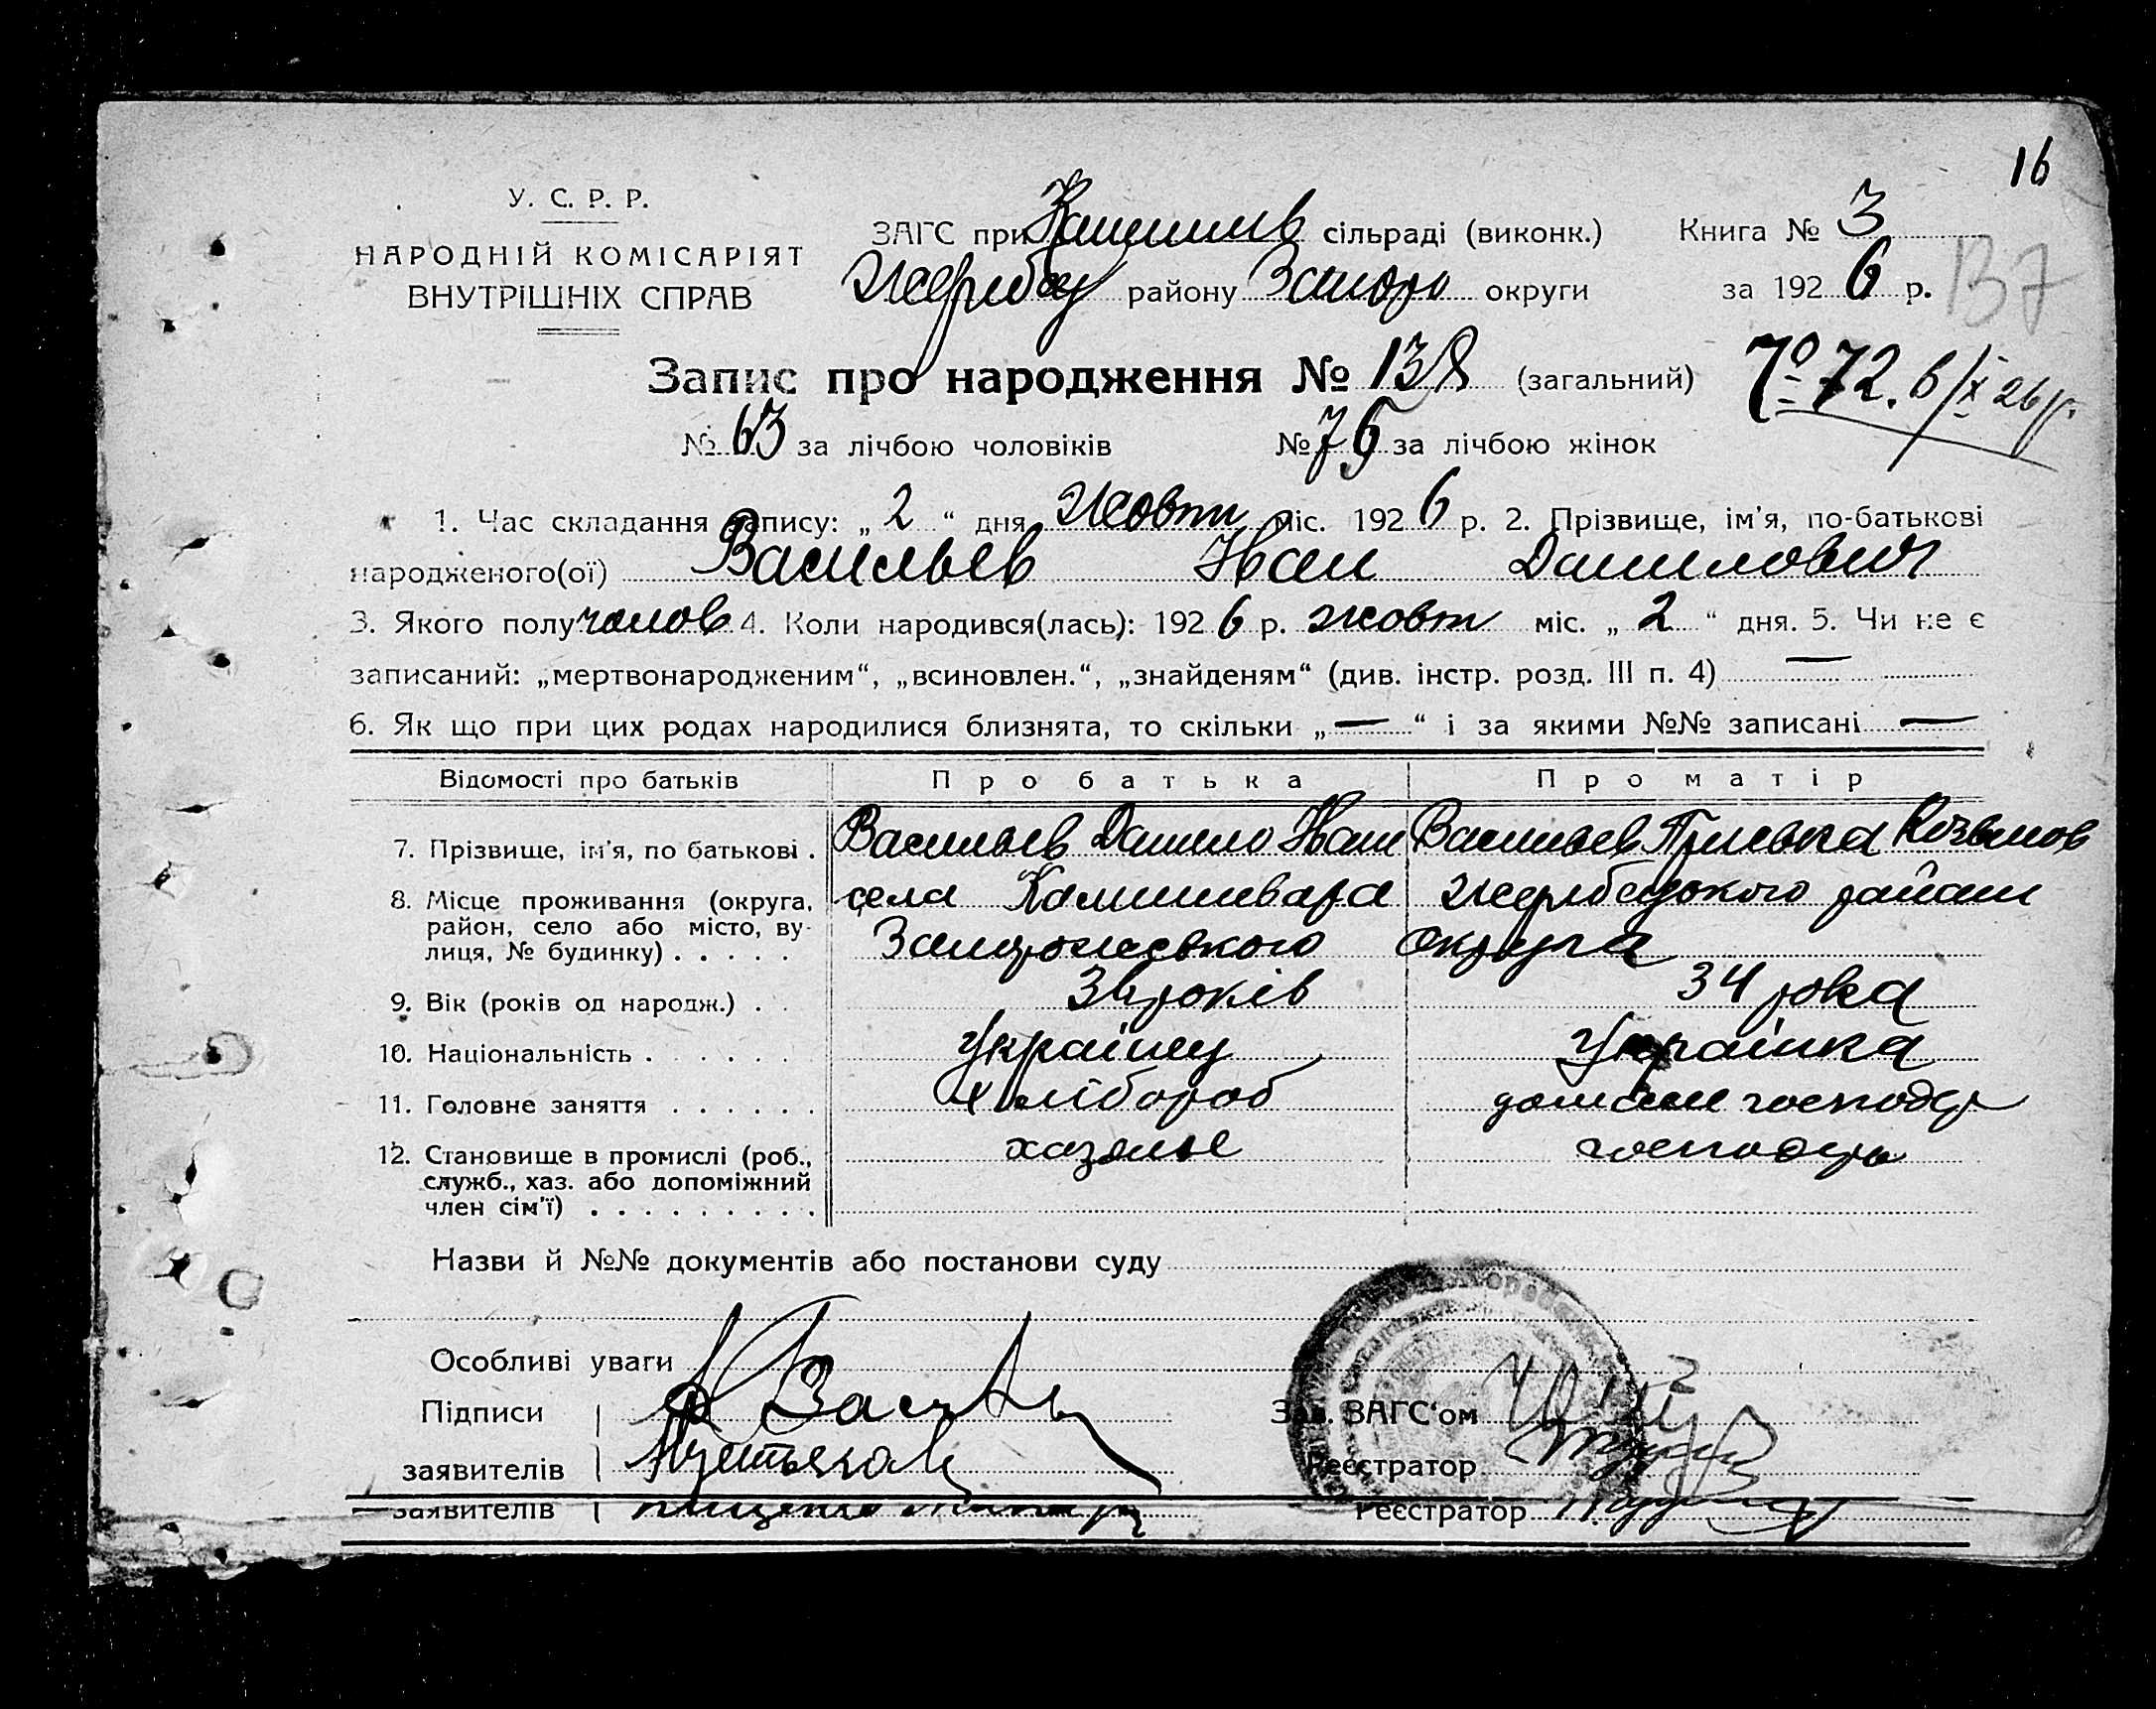 16
У. С. Р. Р.
НАРОДНІЙ КОМІСАРІЯТ
ВНУТРІШНІХ СПРАВ
ЗАГС при Камишив сільраді (виконк.)
Жеребец району Запоро округи
Книга № 3
за 1926 р.
В7
Запис про народження № 138 (загальний)
7º 72. 6/IX 26 р.
№ 63 за лічбою чоловіків № 75 за лічбою жінок
1. Час складання запису: „2“ дня Жовтн міс. 1926 р. 2. Прізвище, ім'я, по-батькові
народженого(ої) Васильєв Иван Данилович
3. Якого полу чолов 4. Коли народився(лась): 1926 р. жовтн міс. „2“ дня. 5. Чи не є
записаний: „мертвонародженим“, „всиновлен.“, „знайденям“ (див. інстр. розд. III п. 4) —
6. Як що при цих родах народилися близнята, то скільки „—“ і за якими №№ записані —
Відомості про батьків Про батька Про матір
7. Прізвище, ім'я, по батькові . Васильєв Данило Иван Васильєв Приська Козьмов
8. Місце проживання (округа, район, село або місто, вулиця, № будинку) . . . . . села Камишеваха Жеребецького района
Запорожського округа
9. Вік (років од народж.) . . 36 років 34 рока
10. Національність . . . . . . Українец Українка
11. Головне заняття . . . . . . Хлібороб домашн господар
12. Становище в промислі (роб., служб., хаз. або допоміжний член сім'ї) . . . . . . . . . хазяїн господар
Назви й №№ документів або постанови суду
Особливі уваги
Підписи
Зав. ЗАГС'ом
заявителів
Реєстратор
заявителів
Реєстратор